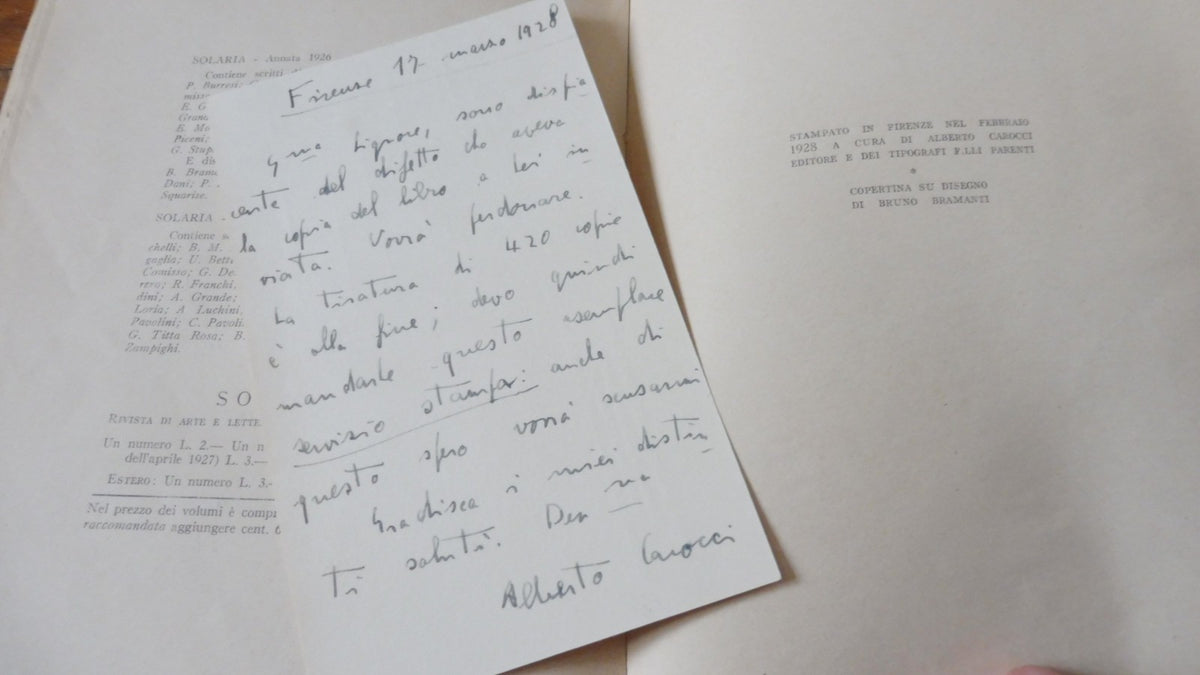 SOLARIA - Annata 1926
Contiene scritti di
P. Burresi;
misso
E. G
Grand
E. Mo
Piceni;
G. Stup
E dis
B. Bramo
Dani; P.
Squarise.
SOLARIA
Contiene
chelli; B. M.
gaglia; U. Bett
Comisso; G. De
rero; R. Franchi,
dini; A. Grande;
Loria; A Luchini,
Pavolini; C. Pavoli
G. Titta Rosa; B.
Zampighi.
SO
RIVISTA DI ARTE E LETTE
Un numero L. 2.— Un n
dell'aprile 1927) L. 3.—
ESTERO: Un numero L. 3.-
Nel prezzo dei volumi è compr
raccomandata aggiungere cent. 6
Firenze 17 marzo 1928
Signore, sono dispia
cente del difetto che aveva
la copia del libro a Lei in
viata. Vorrà perdonare.
La tiratura di 420 copie
è alla fine; devo quindi
mandarle questo esemplare
servizio stampa: anche di
questo spero vorrà scusarmi
Gradisca i miei distin
ti saluti. Dev mo
Alberto Carocci
STAMPATO IN FIRENZE NEL FEBBRAIO
1928 A CURA DI ALBERTO CAROCCI
EDITORE E DEI TIPOGRAFI F.LLI PARENTI
*
COPERTINA SU DISEGNO
DI BRUNO BRAMANTI